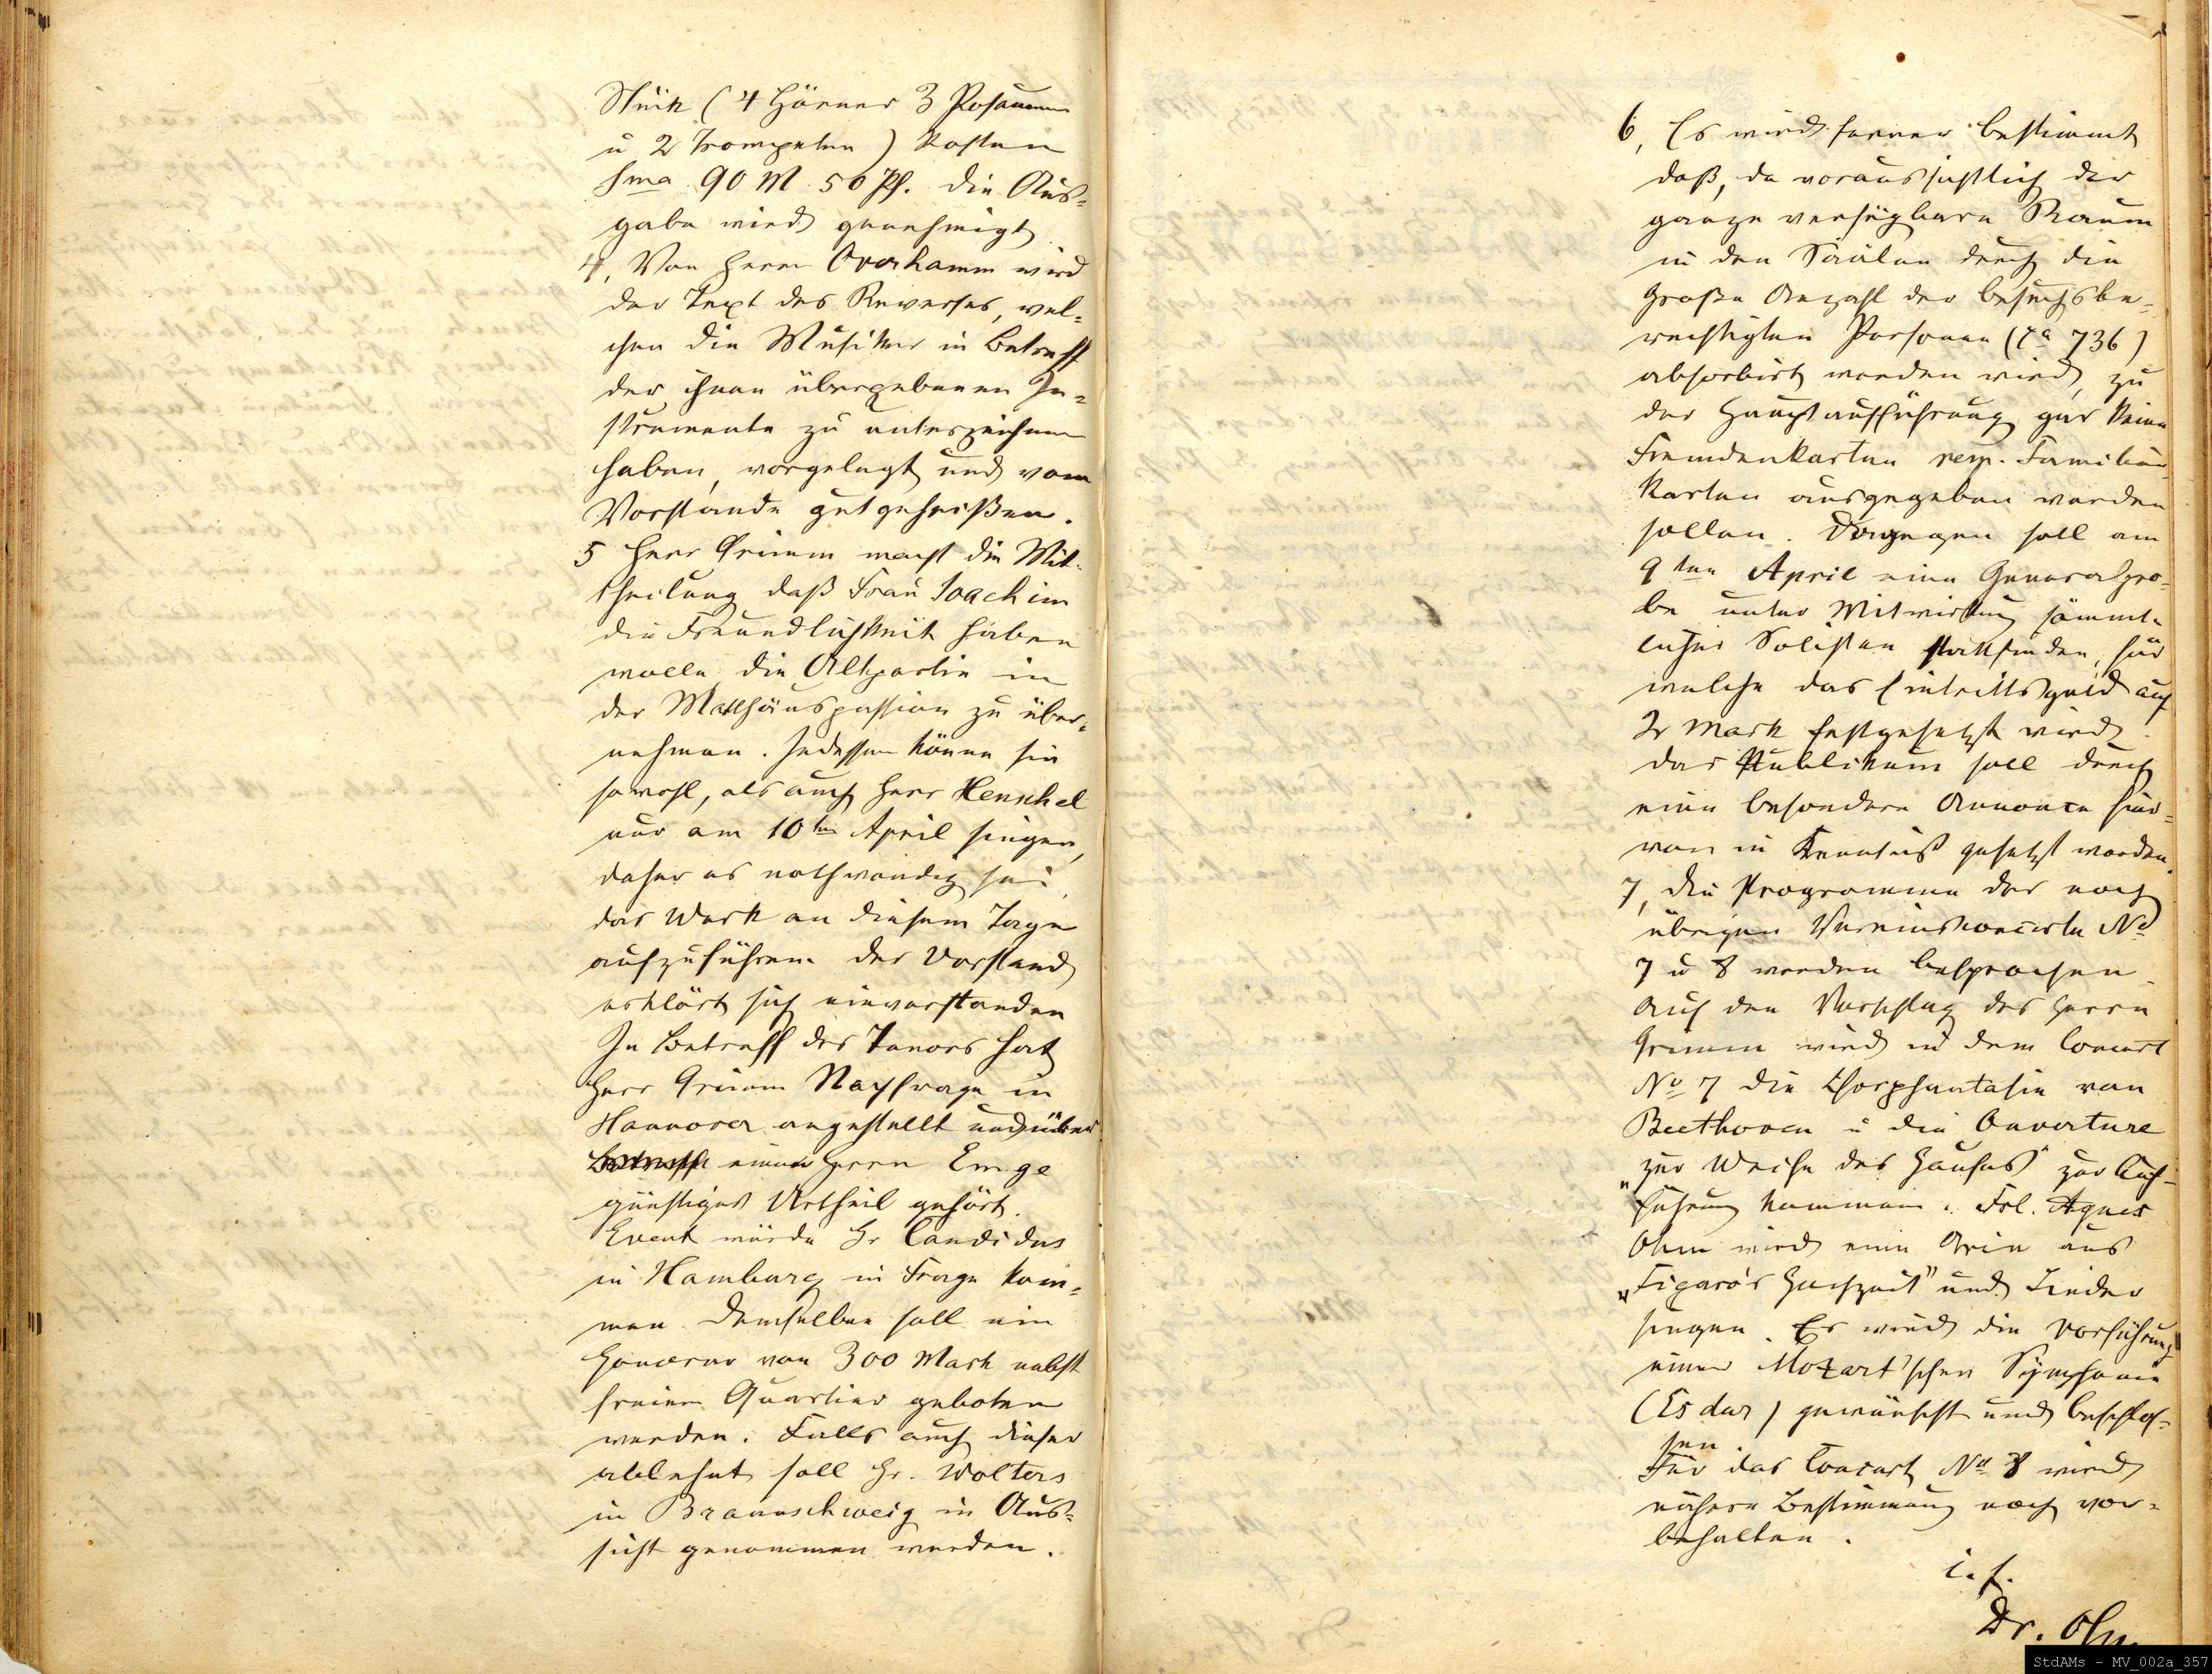 Stück (4 Hörner 3 Posaunen
u 2 Trompeten) kosten
Sma 90 M 50 Pf. die Aus=
gabe wird genehmigt
4, Von Herrn Overhamm wird
der Text des Reverses, wel=
chen die Musiker in Betreff
der ihnen übergebenen In=
strumente zu unterzeichnen
haben, vorgelegt und vom
Vorstande gutgeheißen.
5 Herr Grimm macht die Mit=
theilung daß Frau Joachim
die Freundlichkeit haben
wolle die Altpartie in
der Matthäuspassion zu über=
nehmen. Indessen könne sie
sowohl, als auch Herr Henschel
nur am 10ten April singen,
daher es nothwendig sei,
das Werk an diesem Tage
aufzuführen. der Vorstand
erklärt sich einverstanden
In Betreff des Tenors hat
Herr Grimm Nachfrage in
Hannover angestellt und über
einen Herrn Emge
günstiges Urtheil gehört.
Event würde Hr Candidus
in Hamburg in Frage kom=
men. Demselben soll ein
Honorar von 300 Mark nebst
freiem Quartier geboten
werden. Falls auch dieser
ablehnt soll Hr. Wolters
in Braunschweig in Aus=
sicht genommen werden.
6, Es wird ferner bestimmt
daß, da voraussichtlich der
ganze verfügbare Raum
in den Säälen durch die
große Anzahl der besuchsbe=
rechtigten Personen (ca 736)
absorbirt werden wird, zu
der Hauptaufführung gar keine
Fremdenkarten resp. Familien
karten ausgegeben werden
sollen. Dagegen soll am
9ten April eine Generalpro=
be unter Mitwirkung sämmt=
licher Solisten stattfinden, für
welche das Eintrittsgeld auf
2 Mark festgesetzt wird.
das Publikum soll durch
eine besondere Annonce hier=
von in Kenntniß gesetzt werden.
7, die Programme der noch
übrigen Vereinsconcerte No
7 u 8 werden besprochen.
Auf den Vorschlag des Herrn
Grimm wird in dem Concert
No 7 die Chorphantasie von
Beethoven u die Ouverture
„zur Weihe des Hauses" zur Auf=
führung kommen. Frl. Agnes
Ohm wird eine Arie aus
„Figaro's Hochzeit" und Lieder
singen. Es wird die Vorführung
einer Mozart'schen Symphonie
(Es dur) gewünscht und beschlos=
sen.
Für das Concert No 8 wird
nähere Bestimmung noch vor=
behalten.
i. f.
Dr. Ohm
StdAMs - MV_002a_357